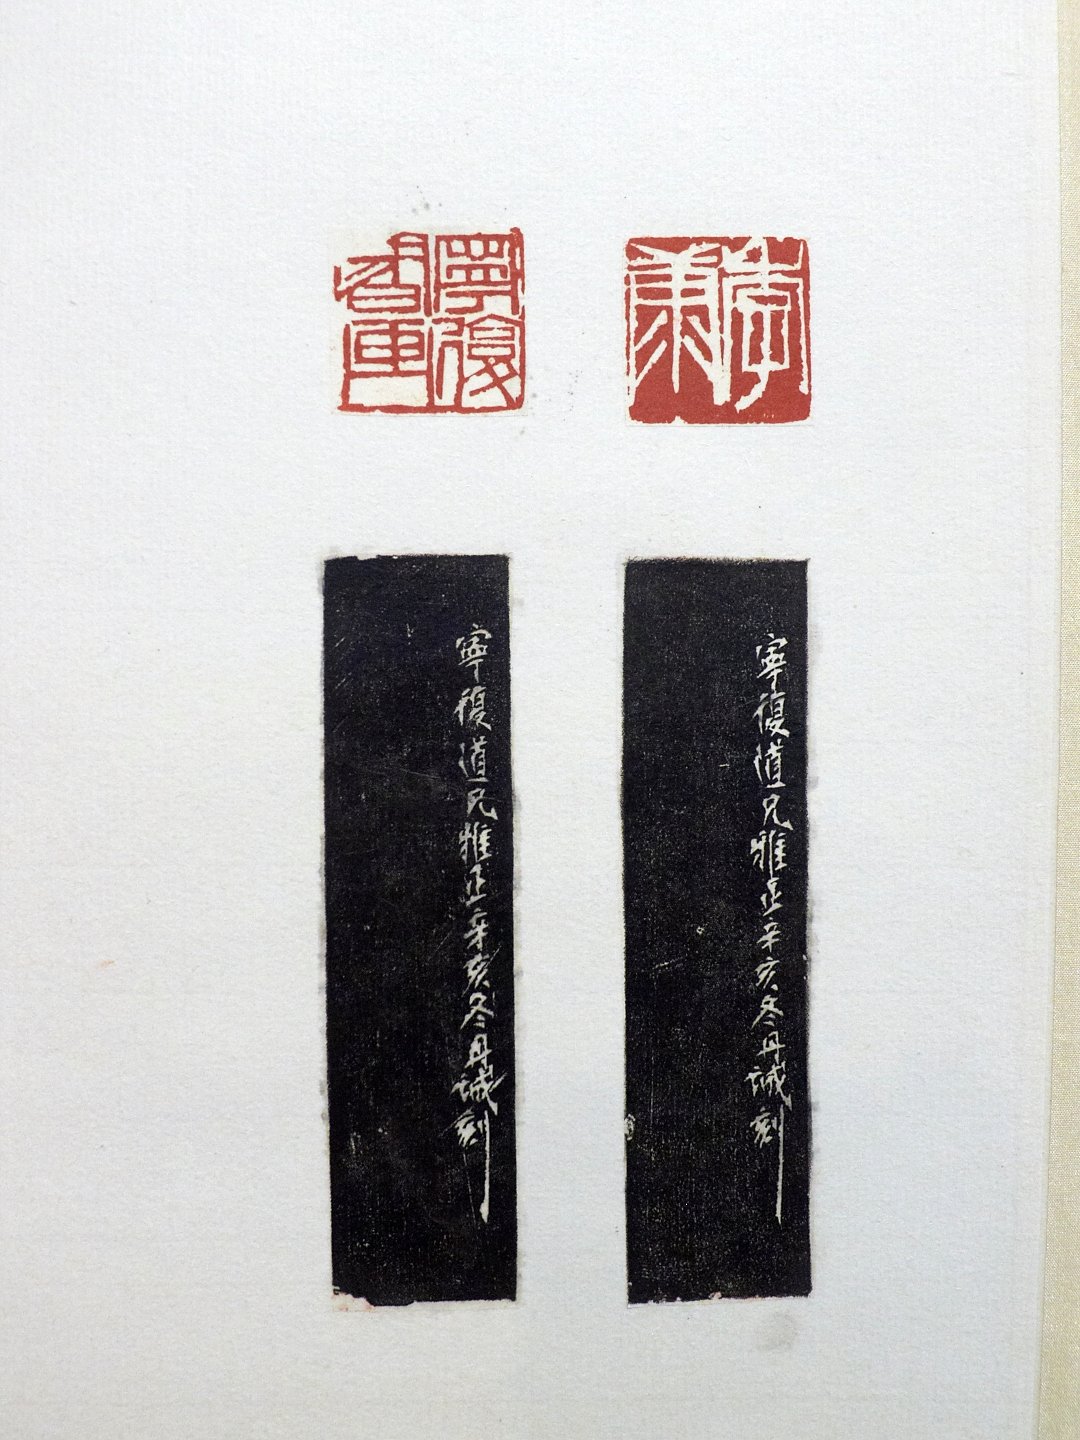 李
寧復
寧復道兄雅正辛亥冬丹誠刻
寧復道兄雅正辛亥冬丹誠刻